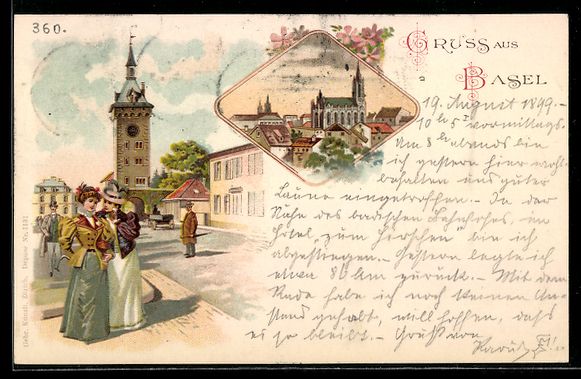 360.
GRUSS AUS
BASEL
19. August 1899.-
10 h 5 vormittags.
Am 8 h abends bin
ich gestern hier wohl-
behalten und guter
Laune eingetroffen.- In der
Nähe des badischen Bahnhofes im
Hotel "zum Hirschen" bin ich
abgestiegen. Gestern legte ich
einen 80 km zurück.- Mit dem
Rade habe ich noch keinen An-
stand gehabt, will hoffen, dass
es so bleibt.- Gruß von
Gebr. Künzli, Zürich, Depose No. 1131